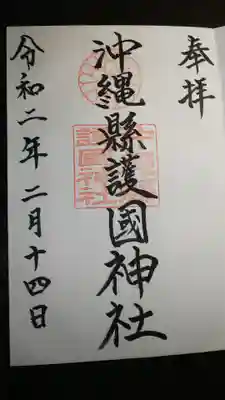 奉拝
沖縄縣護國神社
令和二年二月十四日